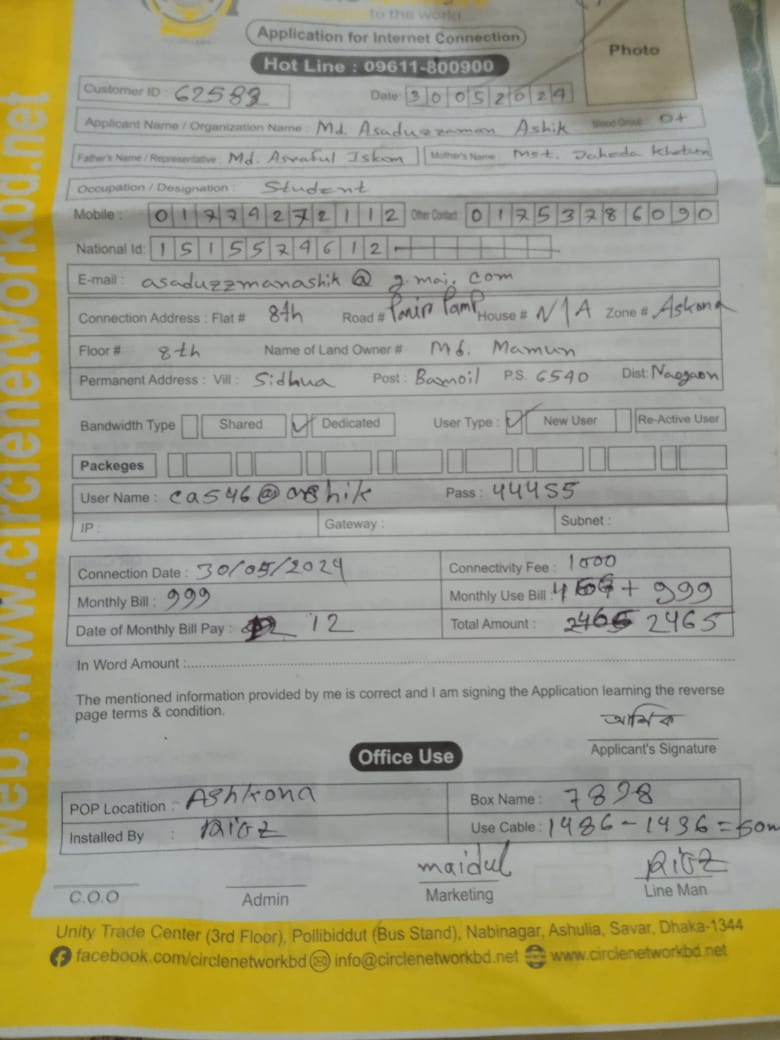 to the world
Application for Internet Connection
Hot Line : 09611-800900
Photo
Customer ID : 62589 Date: 30052024
Applicant Name / Organization Name : Md. Asaduzzaman Ashik Blood Group: O+
Father's Name / Representative : Md. Asraful Islam Mother's Name : Mst. Jaheda Khatun
Occupation / Designation : Student
Mobile : 01779272112 Other Contact : 01753786090
National Id: 1515579612
E-mail : asaduzzmanashik@gmai.com
Connection Address : Flat # 8th Road # Panir Pamp House # N/A Zone # Askona
Floor # 8th Name of Land Owner # Md. Mamun
Permanent Address : Vill : Sidhua Post : Bamoil P.S. 6540 Dist: Naogaon
Bandwidth Type Shared Dedicated User Type : New User Re-Active User
Packeges
User Name : ca546@ashik Pass : 44455
IP : Gateway : Subnet :
Connection Date : 30/05/2024 Connectivity Fee : 1000
Monthly Bill : 999 Monthly Use Bill : + 999
Date of Monthly Bill Pay : 12 Total Amount : 2465
In Word Amount :
The mentioned information provided by me is correct and I am signing the Application learning the reverse
page terms & condition.
আশিক
Applicant's Signature
Office Use
POP Locatition : Ashkona Box Name : 7898
Installed By : Use Cable : 1486 - 1436 = 50m
maidul
C.O.O Admin Marketing Line Man
Unity Trade Center (3rd Floor), Pollibiddut (Bus Stand), Nabinagar, Ashulia, Savar, Dhaka-1344
facebook.com/circlenetworkbd info@circlenetworkbd.net www.circlenetworkbd.net
web: www.circlenetworkbd.net